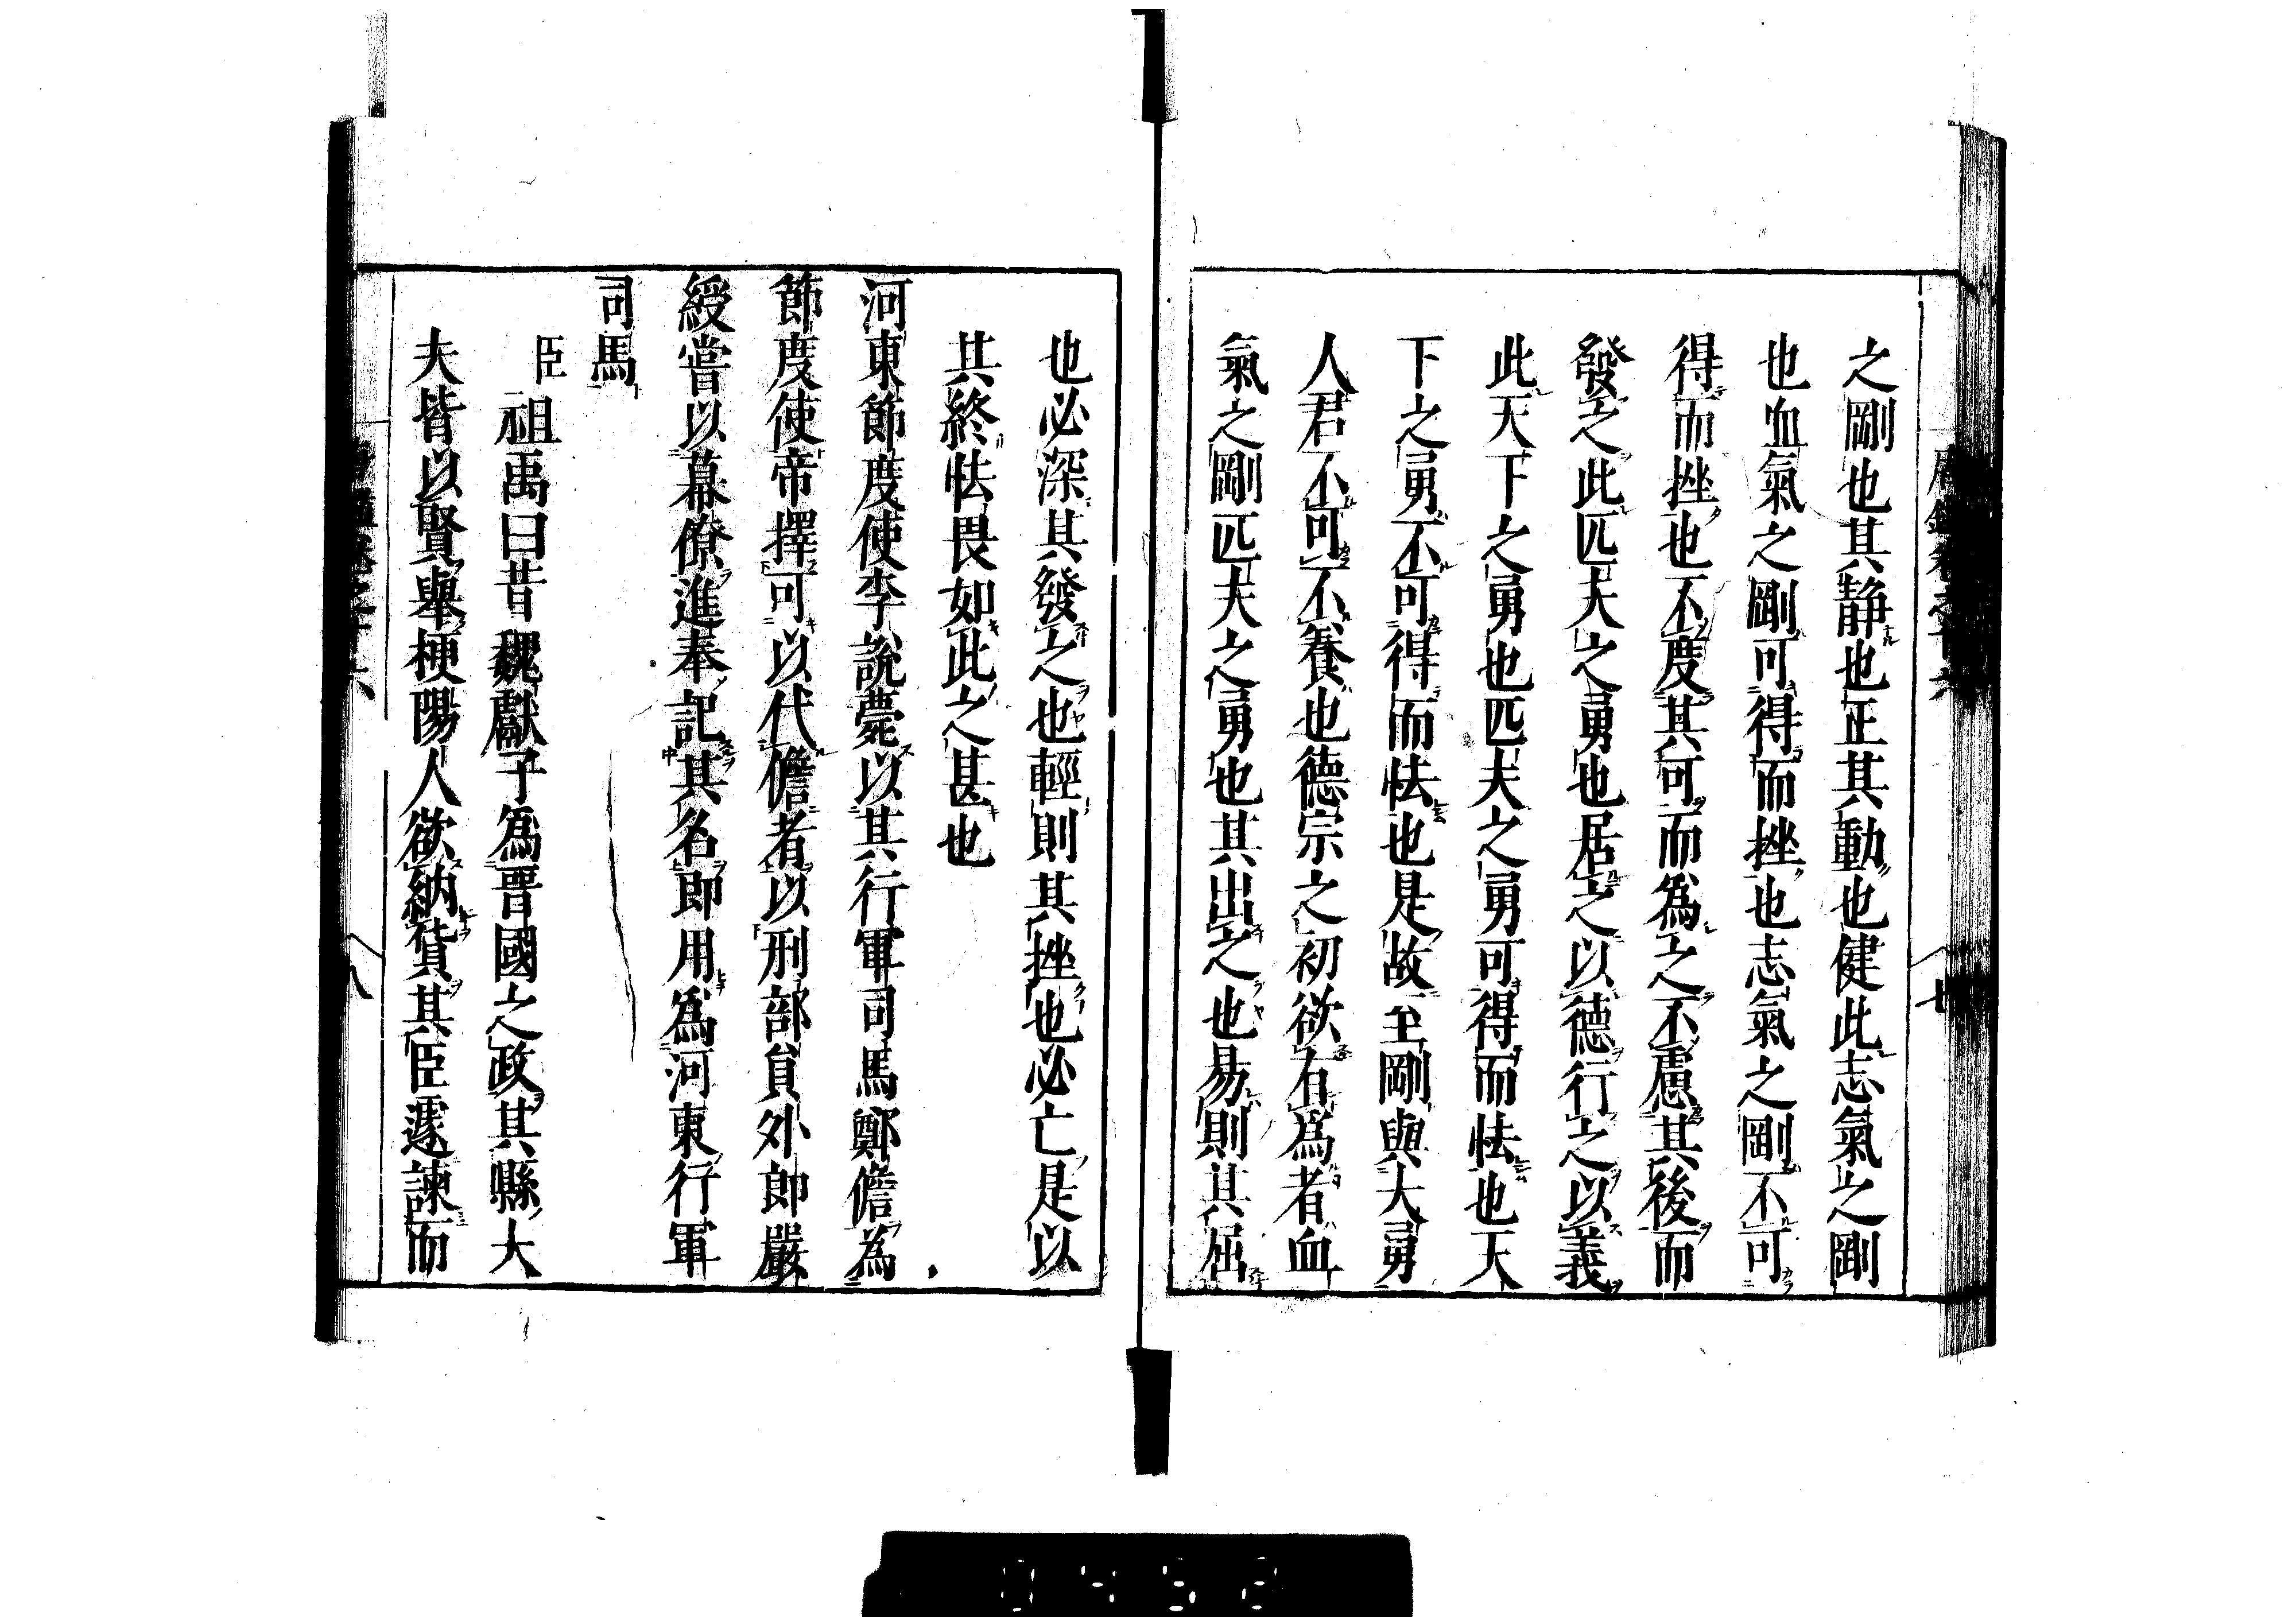 之剛也其静也正其動也健此志氣之剛
也血氣之剛可得而挫也志氣之剛不可
得而挫也不度其可而為之不慮其後而
發之此匹夫之勇也居之以德行之以義
此天下之勇也匹夫之勇可得而怯也天
下之勇不可得而怯也是故至剛與大勇
人君不可不養也德宗之初欲有爲者血
氣之剛匹夫之勇也其出之也易則其屈
也必深其發之也輕則其挫也必亡是以
其終怯畏如此之甚也
河東節度使李說薨以其行軍司馬鄭儋為
節度使帝擇可以代儋者以刑部貟外郎嚴
綬嘗以幕僚進奉記其名即用爲河東行軍
司馬
臣祖禹曰昔魏獻子爲晋國之政其縣大
夫皆以賢舉梗陽人欲納貨其臣遽諫而